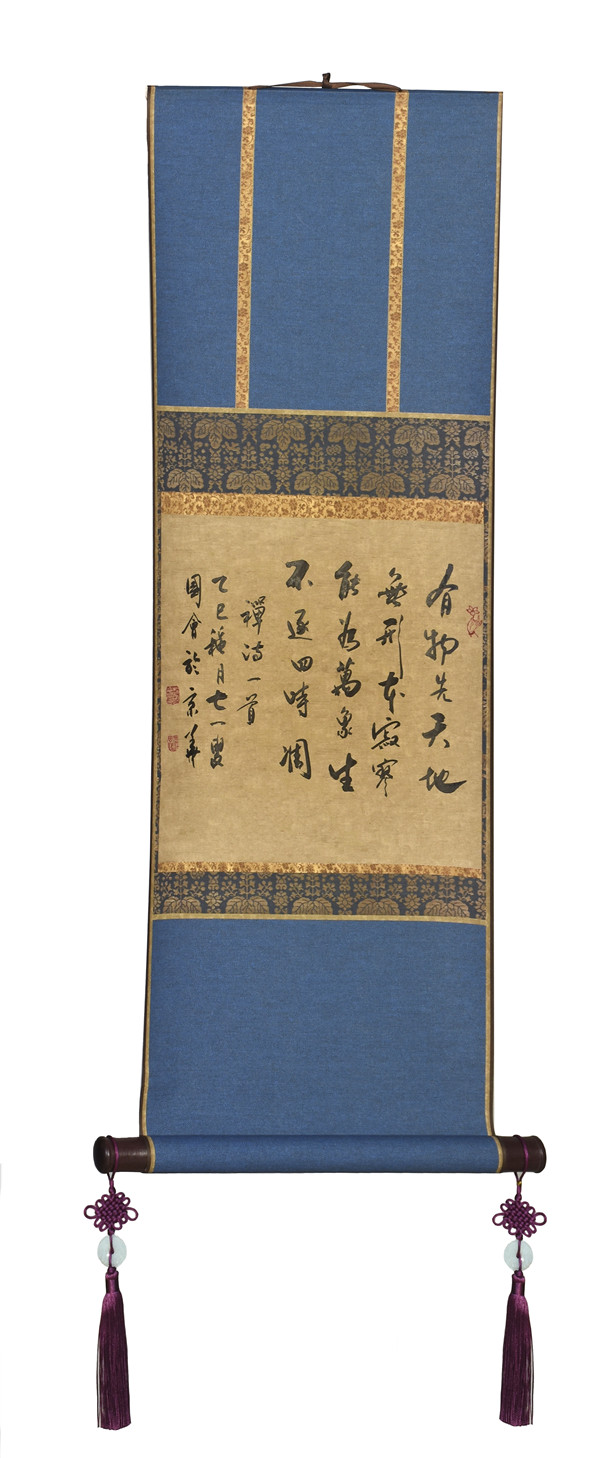 有物先天地
無形本寂寥
能為萬象主
不逐四時凋
禪詩一首
乙巳月七一叟
國會於京華